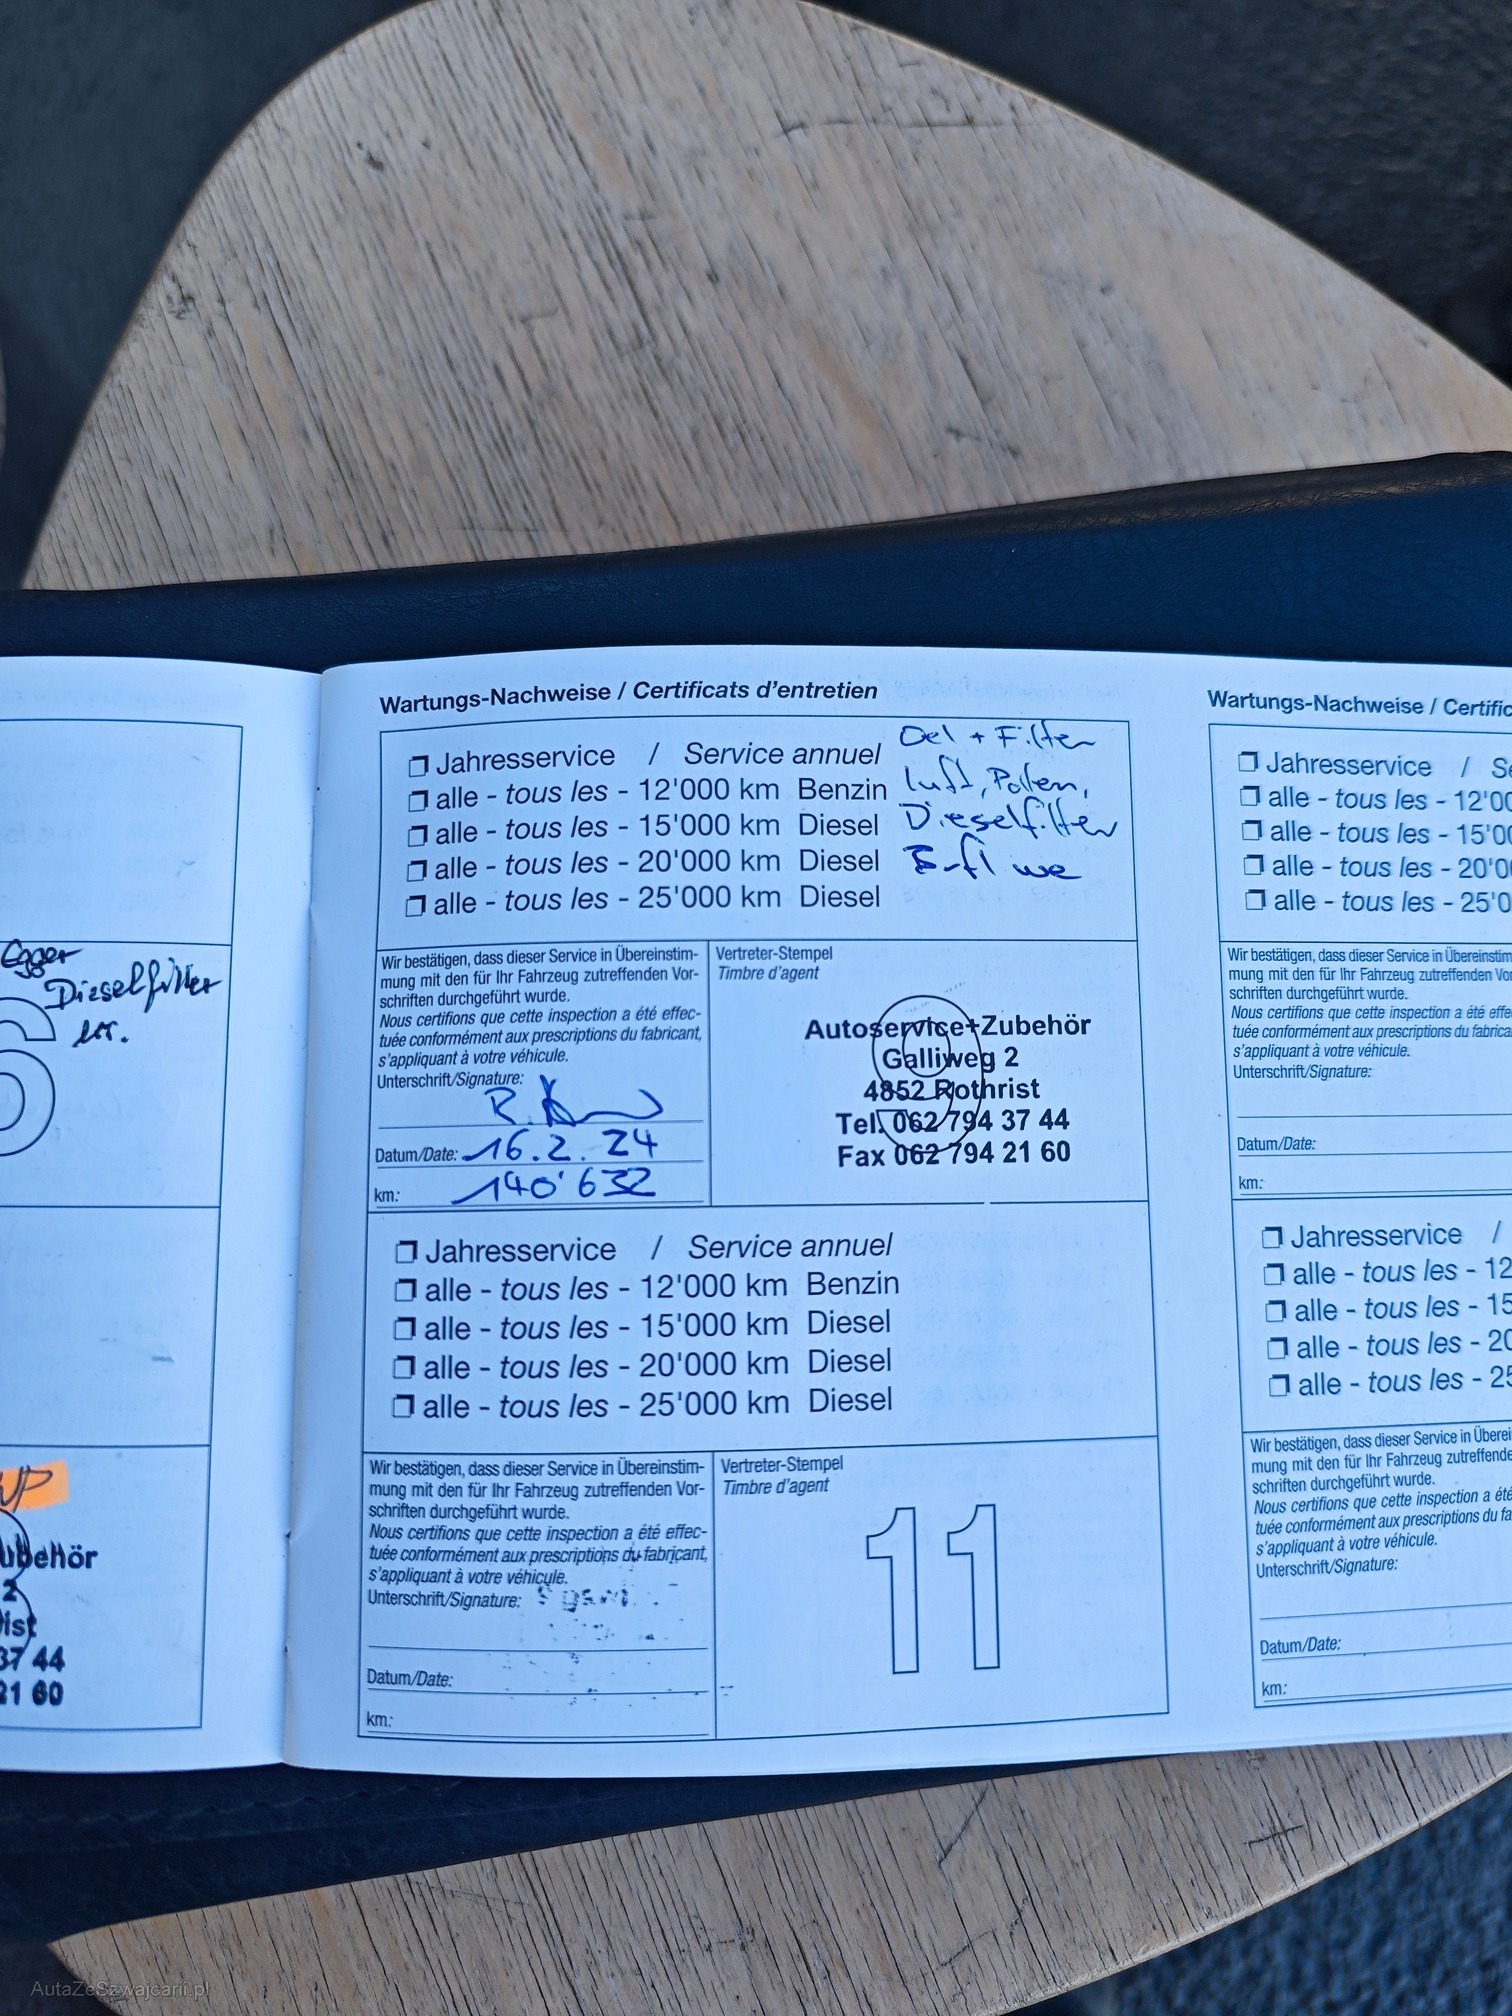 Egger
Dieselfilter
6
ubehör
2
ist
37 44
21 60
Wartungs-Nachweise / Certificats d'entretien
Jahresservice / Service annuel
alle - tous les - 12'000 km Benzin
alle - tous les - 15'000 km Diesel
alle - tous les - 20'000 km Diesel
alle - tous les - 25'000 km Diesel
Oel + Filter
Luft, Pollen,
Dieselfilter
Wir bestätigen, dass dieser Service in Übereinstim-
mung mit den für Ihr Fahrzeug zutreffenden Vor-
schriften durchgeführt wurde.
Nous certifions que cette inspection a été effec-
tuée conformément aux prescriptions du fabricant,
s'appliquant à votre véhicule.
Unterschrift/Signature:
Datum/Date: 16.2.24
km: 140'632
Vertreter-Stempel
Timbre d'agent
Autoservice+Zubehör
Galliweg 2
4852 Rothrist
Tel. 062 794 37 44
Fax 062 794 21 60
Jahresservice / Service annuel
alle - tous les - 12'000 km Benzin
alle - tous les - 15'000 km Diesel
alle - tous les - 20'000 km Diesel
alle - tous les - 25'000 km Diesel
Wir bestätigen, dass dieser Service in Übereinstim-
mung mit den für Ihr Fahrzeug zutreffenden Vor-
schriften durchgeführt wurde.
Nous certifions que cette inspection a été effec-
tuée conformément aux prescriptions du fabricant,
s'appliquant à votre véhicule.
Unterschrift/Signature:
Datum/Date:
km:
Vertreter-Stempel
Timbre d'agent
11
Wartungs-Nachweise / Certific
Jahresservice / Se
alle - tous les - 12'00
alle - tous les - 15'00
alle - tous les - 20'00
alle - tous les - 25'0
Wir bestätigen, dass dieser Service in Übereinstim
mung mit den für Ihr Fahrzeug zutreffenden Vor-
schriften durchgeführt wurde.
Nous certifions que cette inspection a été effe
tuée conformément aux prescriptions du fabrica
s'appliquant à votre véhicule.
Unterschrift/Signature:
Datum/Date:
km:
Jahresservice /
alle - tous les - 12
alle - tous les - 15
alle - tous les - 20
alle - tous les - 25
Wir bestätigen, dass dieser Service in Überei
mung mit den für Ihr Fahrzeug zutreffende
schriften durchgeführt wurde.
Nous certifions que cette inspection a été
tuée conformément aux prescriptions du fa
s'appliquant à votre véhicule.
Unterschrift/Signature:
Datum/Date:
km:
AutaZeSzwajcarii.pl